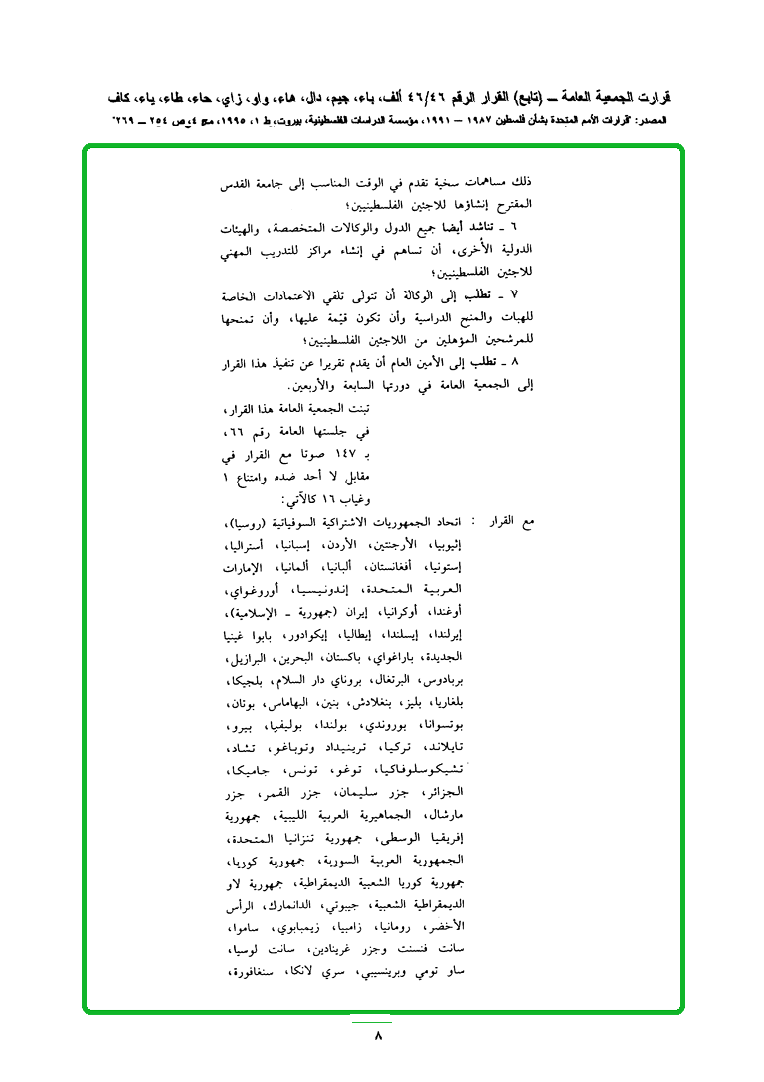 قرارت الجمعية العامة ــ (تابع) القرار الرقم ٤٦/٤٦ ألف، باء، جيم، دال، هاء، واو، زاي، حاء، طاء، ياء، كاف
المصدر: "قرارات الأمم المتحدة بشأن فلسطين ١٩٨٧ – ١٩٩١، مؤسسة الدراسات الفلسطينية، بيروت، ط ١، ١٩٩٥، مج ٤، ص ٢٥٤ – ٢٦٩"
ذلك مساهمات سخية تقدم في الوقت المناسب إلى جامعة القدس
المقترح إنشاؤها للاجئين الفلسطينيين؛
٦ ـ تناشد أيضا جميع الدول والوكالات المتخصصة، والهيئات
الدولية الأخرى، أن تساهم في إنشاء مراكز للتدريب المهني
للاجئين الفلسطينيين؛
٧ ـ تطلب إلى الوكالة أن تتولى تلقي الاعتمادات الخاصة
للهبات والمنح الدراسية وأن تكون قيّمة عليها، وأن تمنحها
للمرشحين المؤهلين من اللاجئين الفلسطينيين؛
٨ ـ تطلب إلى الأمين العام أن يقدم تقريرا عن تنفيذ هذا القرار
إلى الجمعية العامة في دورتها السابعة والأربعين.
تبنت الجمعية العامة هذا القرار،
في جلستها العامة رقم ٦٦،
بـ ١٤٧ صوتا مع القرار في
مقابل لا أحد ضده وامتناع ١
وغياب ١٦ كالآتي:
مع القرار : اتحاد الجمهوريات الاشتراكية السوفياتية (روسيا)،
إثيوبيا، الأرجنتين، الأردن، إسبانيا، أستراليا،
إستونيا، أفغانستان، ألبانيا، ألمانيا، الإمارات
العربية المتحدة، إندونيسيا، أوروغواي،
أوغندا، أوكرانيا، إيران (جمهورية ـ الإسلامية)،
إيرلندا، إيسلندا، إيطاليا، إيكوادور، بابوا غينيا
الجديدة، باراغواي، باكستان، البحرين، البرازيل،
بربادوس، البرتغال، بروناي دار السلام، بلجيكا،
بلغاريا، بليز، بنغلادش، بنين، البهاماس، بوتان،
بوتسوانا، بوروندي، بولندا، بوليفيا، بيرو،
تايلاند، تركيا، ترينيداد وتوباغو، تشاد،
تشيكوسلوفاكيا، توغو، تونس، جاميكا،
الجزائر، جزر سليمان، جزر القمر، جزر
مارشال، الجماهيرية العربية الليبية، جمهورية
إفريقيا الوسطى، جمهورية تنزانيا المتحدة،
الجمهورية العربية السورية، جمهورية كوريا،
جمهورية كوريا الشعبية الديمقراطية، جمهورية لاو
الديمقراطية الشعبية، جيبوتي، الدانمارك، الرأس
الأخضر، رومانيا، زامبيا، زيمبابوي، ساموا،
سانت فنسنت وجزر غرينادين، سانت لوسيا،
ساو تومي وبرينسيبي، سري لانكا، سنغافورة،
٨